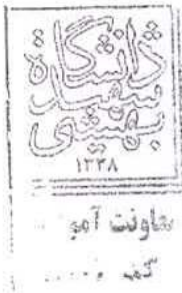 دانشگاه
شهید
بهشتی
۱۳۳۸
معاونت آمو